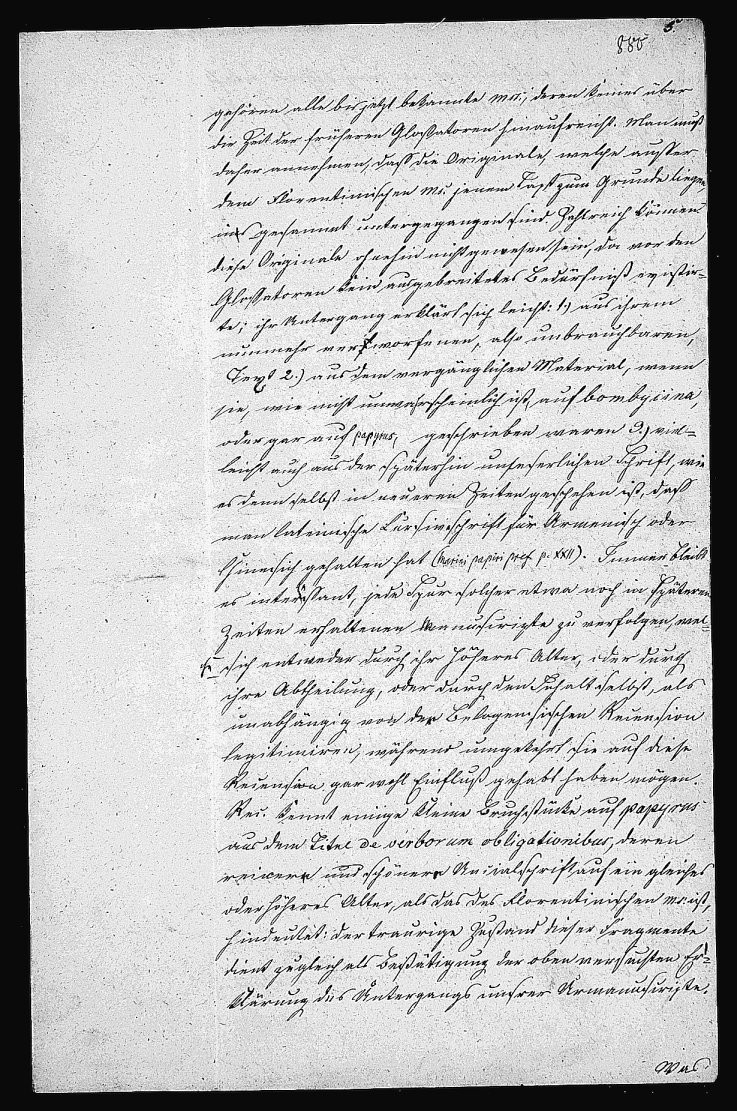 5.
888
gehören alle bis jetzt bekannte Mss., deren keines über
die Zeit der früheren Glossatoren hinaufreicht. Man muß
daher annehmen, daß die Originale, welche ausser
dem Florentinischen Ms. jenem Text zum Grunde liegen
ins gesammt untergegangen sind. Zahlreich können
diese Originale ohnehin nicht gewesen sein, da vor den
Glossatoren kein ausgebreitetes Bedürfniß existir-
te; ihr Untergang erklärt sich leicht: 1.) aus ihrem
nunmehr verworfenen, also unbrauchbaren,
Text 2.) aus dem vergänglichen Material, wenn
sie, wie nicht unwahrscheinlich ist, auf bombycina,
oder gar auf papyrus, geschrieben waren 3.) viel-
leicht auch aus der späterhin unleserlichen Schrift, wie
es denn selbst in neueren Zeiten geschehen ist, daß
man lateinische Cursivschrift für Armenisch oder
Chinesisch gehalten hat (Marini papiri pref p. XXII). Immer bleibt
es interessant, jede Spur solcher etwa noch in späteren
Zeiten erhaltenen Manuscripte zu verfolgen, wel-
che sich entweder durch ihr höheres Alter, oder durch
ihre Abtheilung, oder durch den Inhalt selbst, als
unabhängig von der Bolognesischen Recension
legitimiren, während umgekehrt sie auf diese
Recension gar wohl Einfluß gehabt haben mögen.
Rec. kennt einige kleine Bruchstücke auf papyrus
aus dem Titel de verborum obligationibus, deren
reinere und schönere Uncialschrift auf ein gleiches
oder höheres Alter, als das des Florentinischen Ms. ist,
hindeutet: der traurige Zustand dieser Fragmente
dient zugleich als Bestätigung der oben versuchten Er-
klärung des Untergangs unsrer Urmanuscripte.
Was